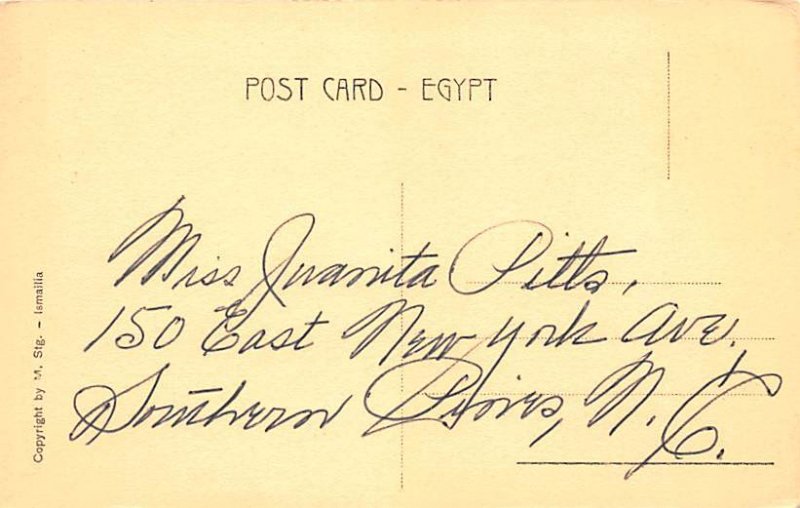 POST CARD - EGYPT
Miss Juanita Pitts,
150 East New York Ave.
Southern Pines, N. C.
Copyright by M. Stg. - Ismailia